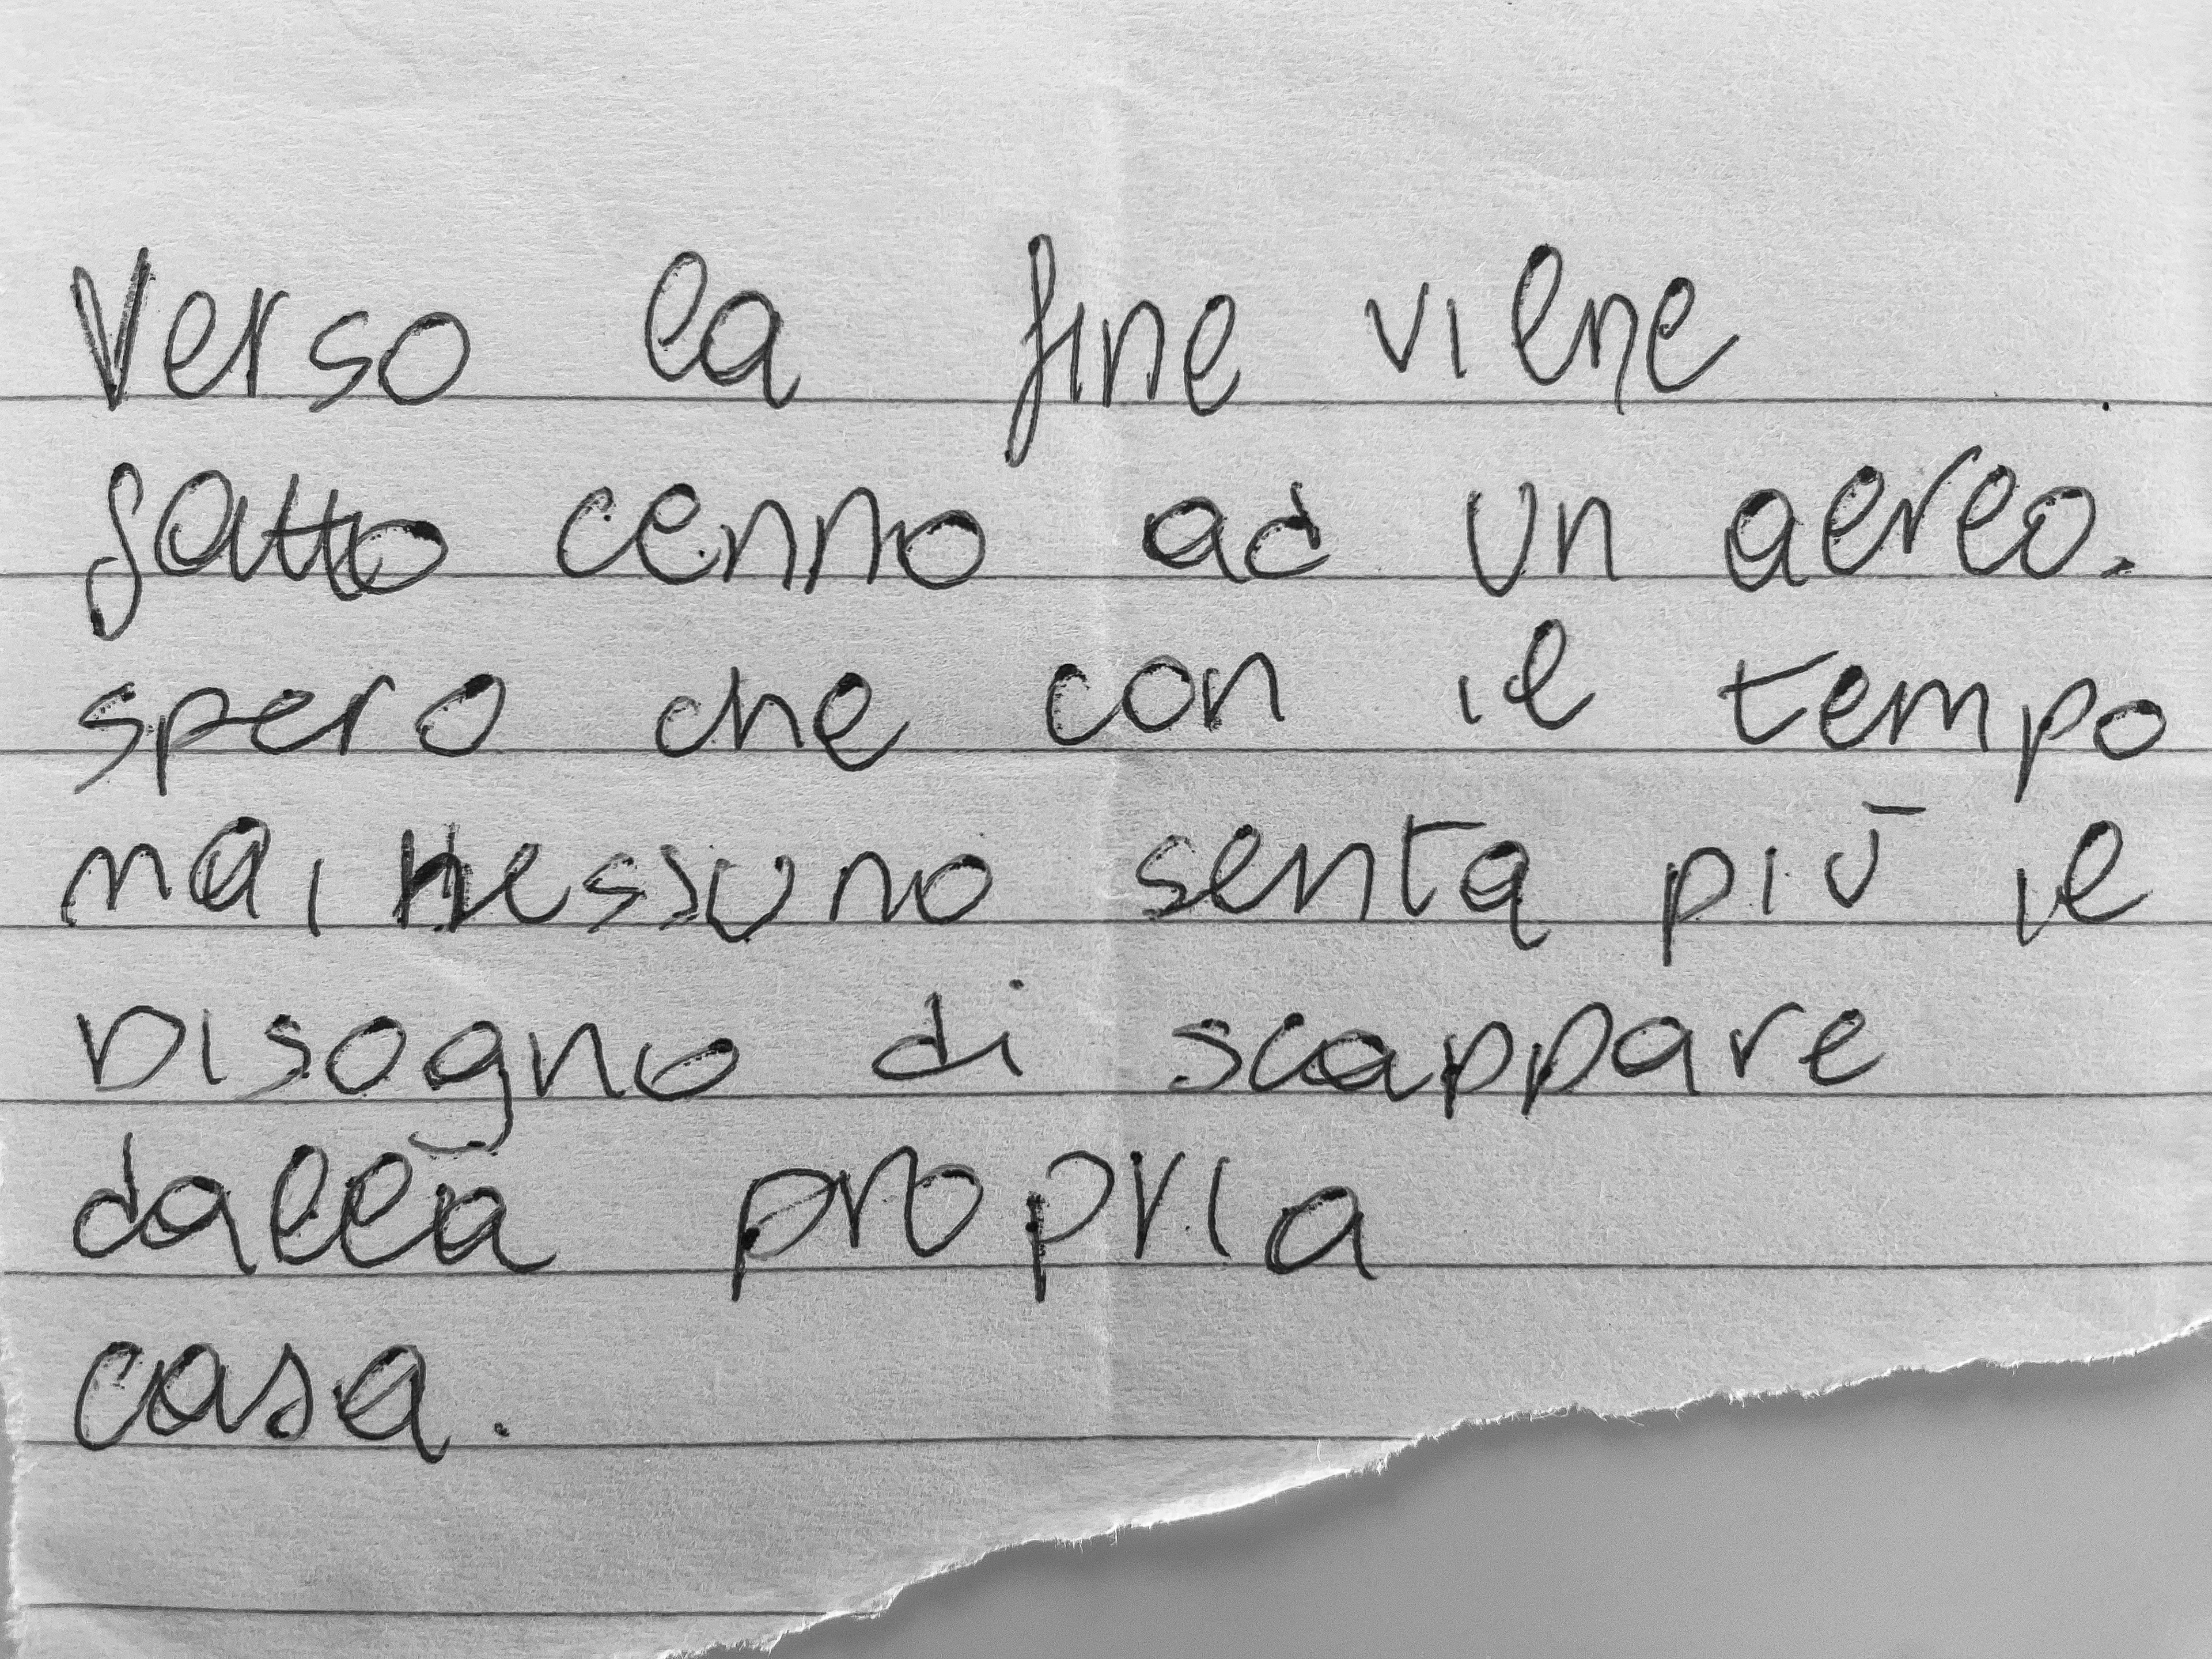 Verso la fine viene
fatto cenno ad un aereo.
spero che con il tempo
mai nessuno senta più il
bisogno di scappare
dalla propria
casa.